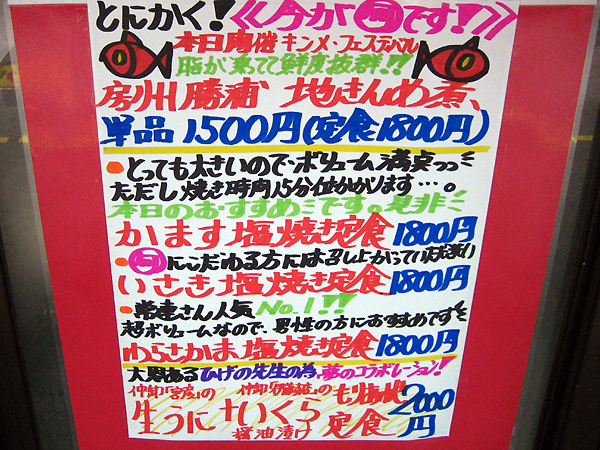 とにかく!《今が旬です!》
本日開催 キンメ・フェステバル
脂が乗てて鮮度抜群!!
房州勝浦 地きんめ煮、
単品 1,500円(定食1800円)
・とっても大きいので、ボリューム満点っっ
ただし焼き時間15分位かかります…。
本日のおすすめです。是非
かます塩焼き定食1800円
・旬にこだわる方には召し上がっていただきたい
いさき塩焼き定食1800円
・常連さん人気No.1!!
超ボリュームなので、男性の方におすすめです
わらさかま塩焼き定食1800円
大恩あるひげの先生の為、夢のコラボレーション!
仲卸の 仲卸の
生うにさいくら醤油漬け定食2000円